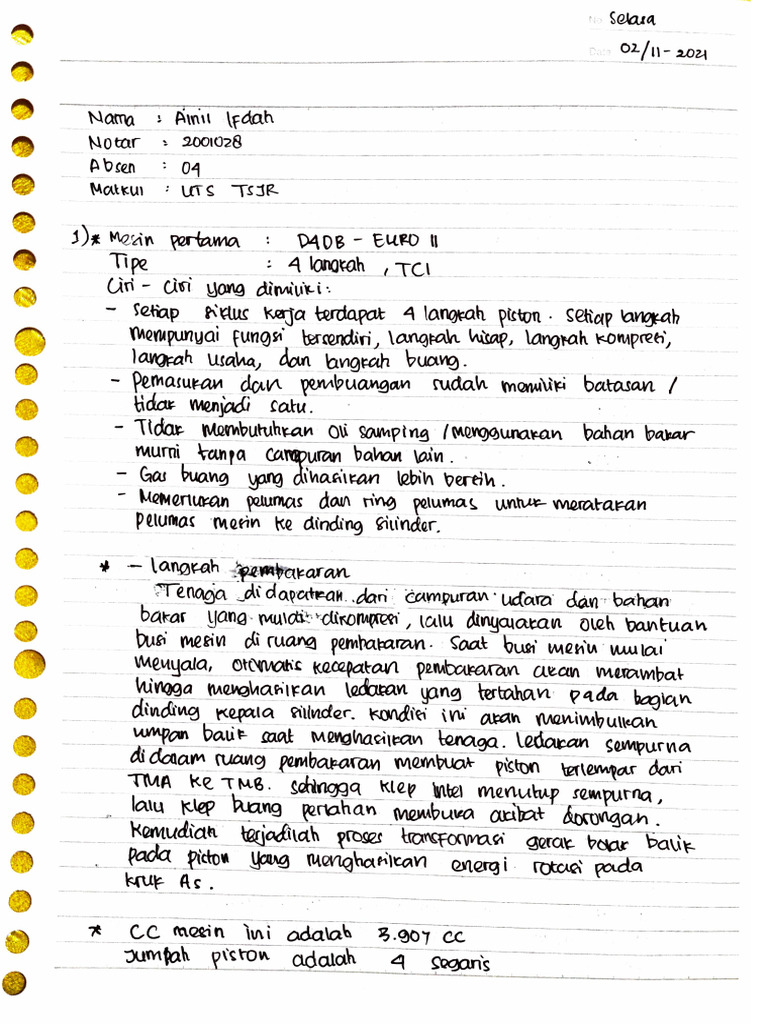 No. Selasa
Date 02/11-2021
Nama : Ainil Ifdah
Notar : 2001028
Absen : 04
Matkul : UTS TSJR
1) * Mesin pertama : D4DB - EURO II
Tipe : 4 langkah, TCI
Ciri - Ciri yang dimiliki :
- Setiap siklus kerja terdapat 4 langkah piston. Setiap langkah
mempunyai fungsi tersendiri, langkah hisap, langkah kompresi,
langkah usaha, dan langkah buang.
- Pemasukan dan pembuangan sudah memiliki batasan /
tidak menjadi satu.
- Tidak membutuhkan oli samping / menggunakan bahan bakar
murni tanpa campuran bahan lain.
- Gas buang yang dihasilkan lebih bersih.
- Memerlukan pelumas dan ring pelumas untuk meratakan
pelumas mesin ke dinding silinder.
* - langkah pembakaran
Tenaga didapatkan dari campuran udara dan bahan
bakar yang mulai dikompresi, lalu dinyalakan oleh bantuan
busi mesin di ruang pembakaran. Saat busi mesin mulai
menyala, otomatis kecepatan pembakaran akan merambat
hingga menghasilkan ledakan yang tertahan pada bagian
dinding kepala silinder. Kondisi ini akan menimbulkan
umpan balik saat menghasilkan tenaga. Ledakan sempurna
didalam ruang pembakaran membuat piston terlempar dari
TMA ke TMB. Sehingga klep intel menutup sempurna,
lalu klep buang perlahan membuka akibat dorongan.
Kemudian terjadilah proses transformasi gerak bolak balik
pada piston yang menghasilkan energi rotasi pada
kruk As.
* CC mesin ini adalah 3.907 cc
Jumlah piston adalah 4 segaris